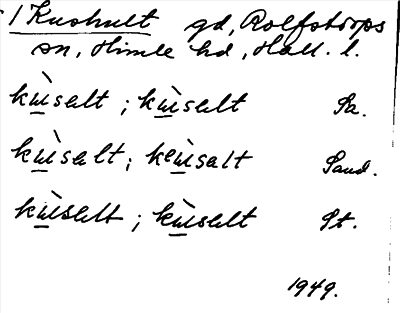 1 Kushult gd, Rolfstorps
sn, Himle hd, Hall. l.
kùsalt ; kùsalt Sa.
kùsalt ; keùsalt Sand.
kùsalt ; kùsalt St.
1949.